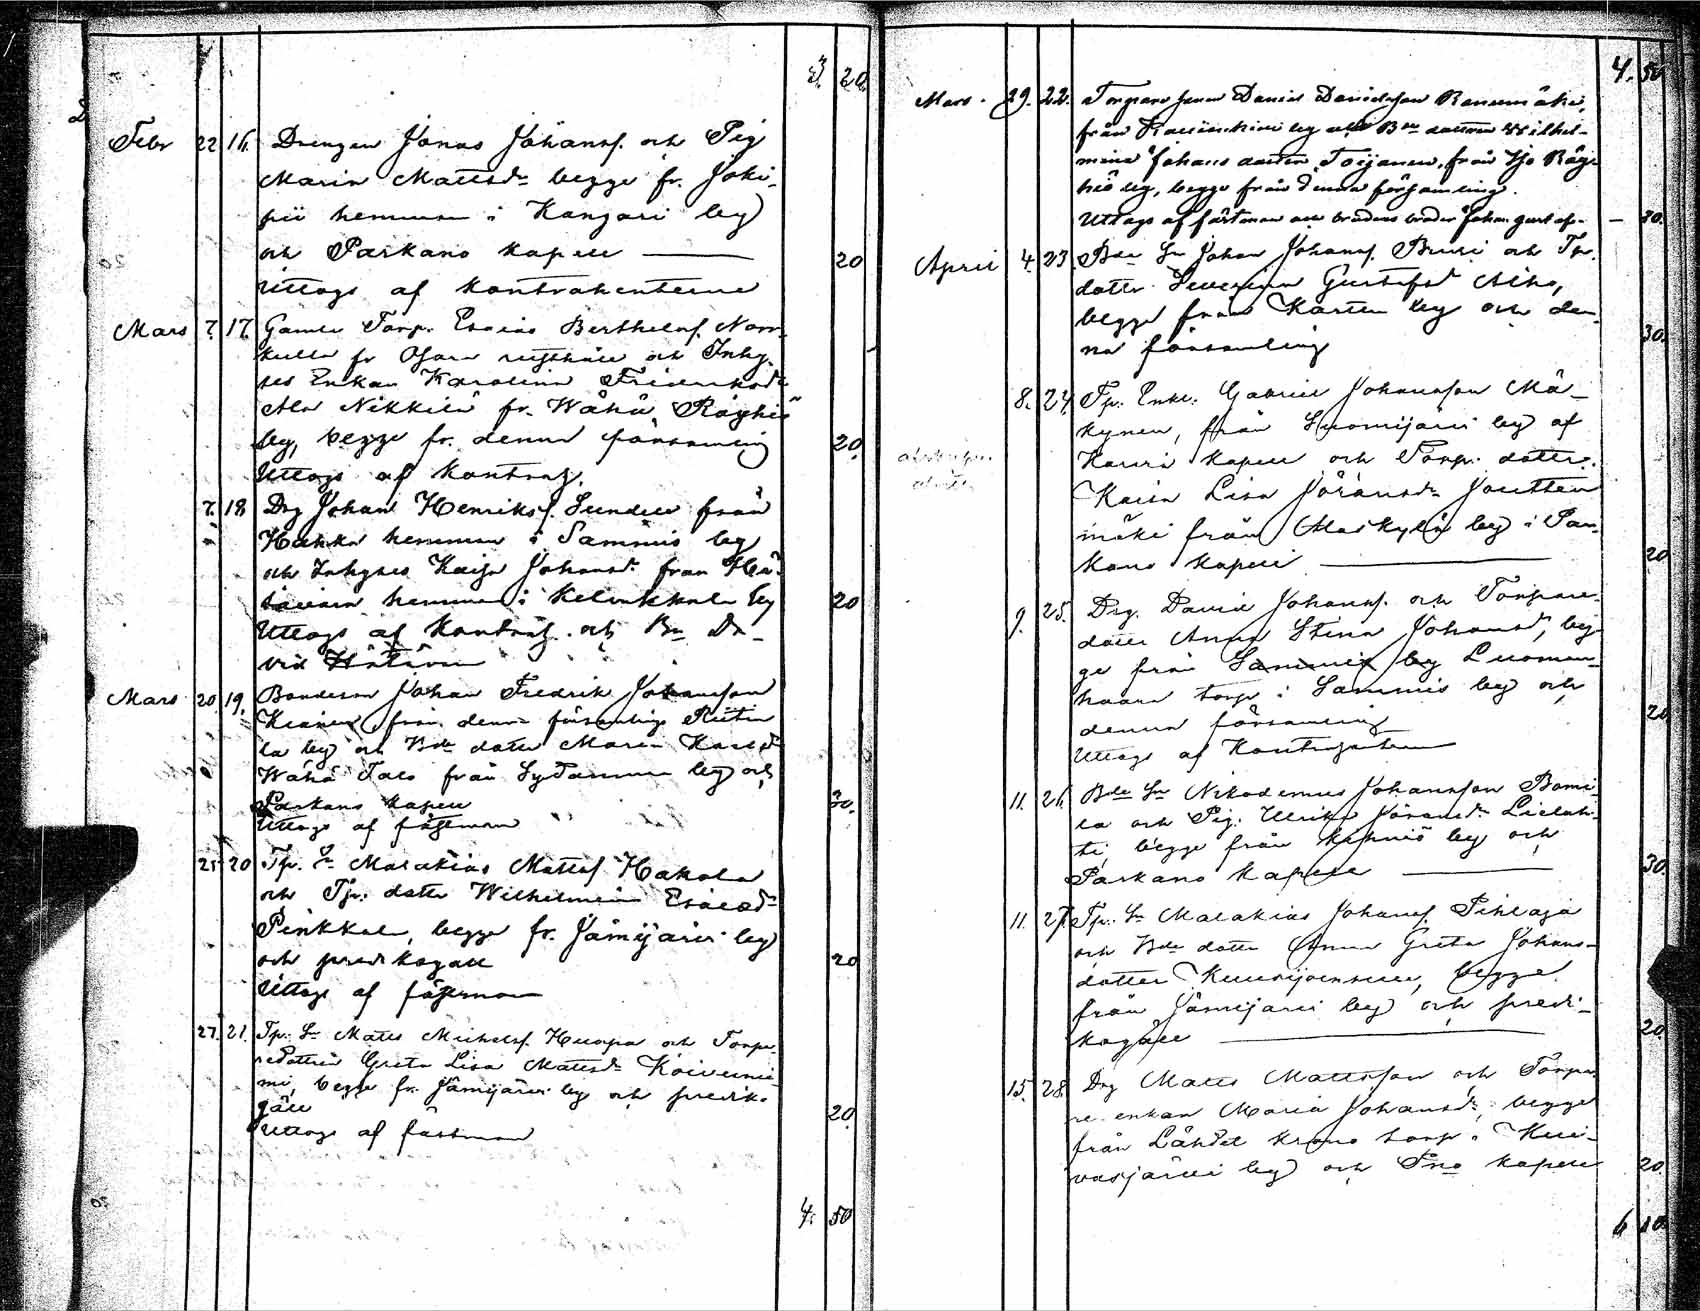 3. 20.
Febr 22 16. Drengen Jonas Johansf. och Pig
Maria Mattsdr begge fr. Joki-
pii hemman i Kangari by
och Parkano kapell — 20
Uttogs af kontrahenterne
Mars 7. 17. Gamle Torp. Esaias Berthelsf. Norr-
kulla fr Ojara rusthåll och Inhy-
ses Enkan Karolina Fredriksdr
Ala Nikkilä fr. Wähä Röyhiö
by, begge fr. denna församling 20.
Uttogs af kontrah.
7. 18 Drg Johan Henriksf. Sundell från
Hakka hemman i Sammis by
och Inhyses Kaisa Johansdr från Hä-
hemman i Kelankkala by 20
Uttogs af kontrah. och Bn Da-
vid
Mars 20. 19. Bondeson Johan Fredrik Johansson
från denna församlings
la by och Bde dotter Maria Karlsdr
Wähä Talo från Sydänmaa by och
Parkano kapell 30.
Uttogs af fästeman
21 20 Tp. Sn Malakias Mattsf. Hakala
och Tp. dotter Wilhelmina Esaiædr
Pinkkala, begge fr. Jämijärvi by
och predikogäll 20
Uttogs af fästeman
27. 21. Tp. Sn Matts Michelsf. Huopa och Torpa-
redottren Greta Lisa Mattsdr Koivunie-
mi, begge fr. Jämijärvi by och prediko-
gäll 20
Uttogs af fästman
4. 50
4. 50
Mars. 29. 22. Torpare sonen Daniel Danielsson Ransumäki,
från by och Bde dottren Wilhel-
mina Johansdotter Torjanen, från Yfo Röyh
hiö by, begge från denna församling.
Uttogs af fästman och brudens broder Johan Gustaf. — 30.
April 4. 23 Bde Sn Johan Johansf. Bruri och Tp.
dotter Severina Gustafsdr Alho,
begge från Karttu by och den-
na församling 30.
8. 24. Tp. Enkl. Gabriel Johansson Mä-
kynen, från Suomijärvi by af
Karvia kapell och Torp. dotter
Kaisa Lisa Jöransdr Joutten
mäki från Alaskylä by i Par-
kano kapell — 20
9. 25. Drg. David Johansf. och Torpare
dotter Anna Stina Johansdr, beg-
ge från Sammis by Luoman-
haara torp i Sammis by och
denna församling 20
Uttogs af Kontrahenten
11. 26. Bde Sn Nikodemus Johansson Bomi-
la och Pig. Ulrika Jöransdr Lielah-
ti, begge från by och
Parkano Kapell — 30.
11. 27. Tp. Sn Malakias Johansf. Pihlaja
och Bde dotter Anna Greta Johans-
dotter Kuusijoensuu, begge
från Jämijärvi by och predi-
kogäll — 20.
15. 28. Drg Matts Mattsson och Torpa-
re enkan Maria Johansdr, begge
från Lähdet krono torp i Kui-
vasjärvi by och Pno kapell 20.
6 10.